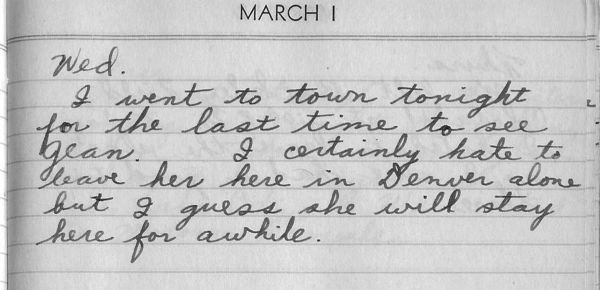 MARCH 1
Wed.
I went to town tonight
for the last time to see
Jean. I certainly hate to
leave her here in Denver alone
but I guess she will stay
here for awhile.